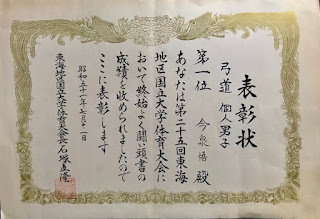 表彰状
弓道 個人男子
第一位 今泉悟殿
あなたは第二十五回東海
地区国立大学体育大会に
おいて終始よく闘い頭書の
成績を収められましたので
ここに表彰します
昭和五十一年七月十一日
東海地区国立大学体育大会会長 石塚直隆